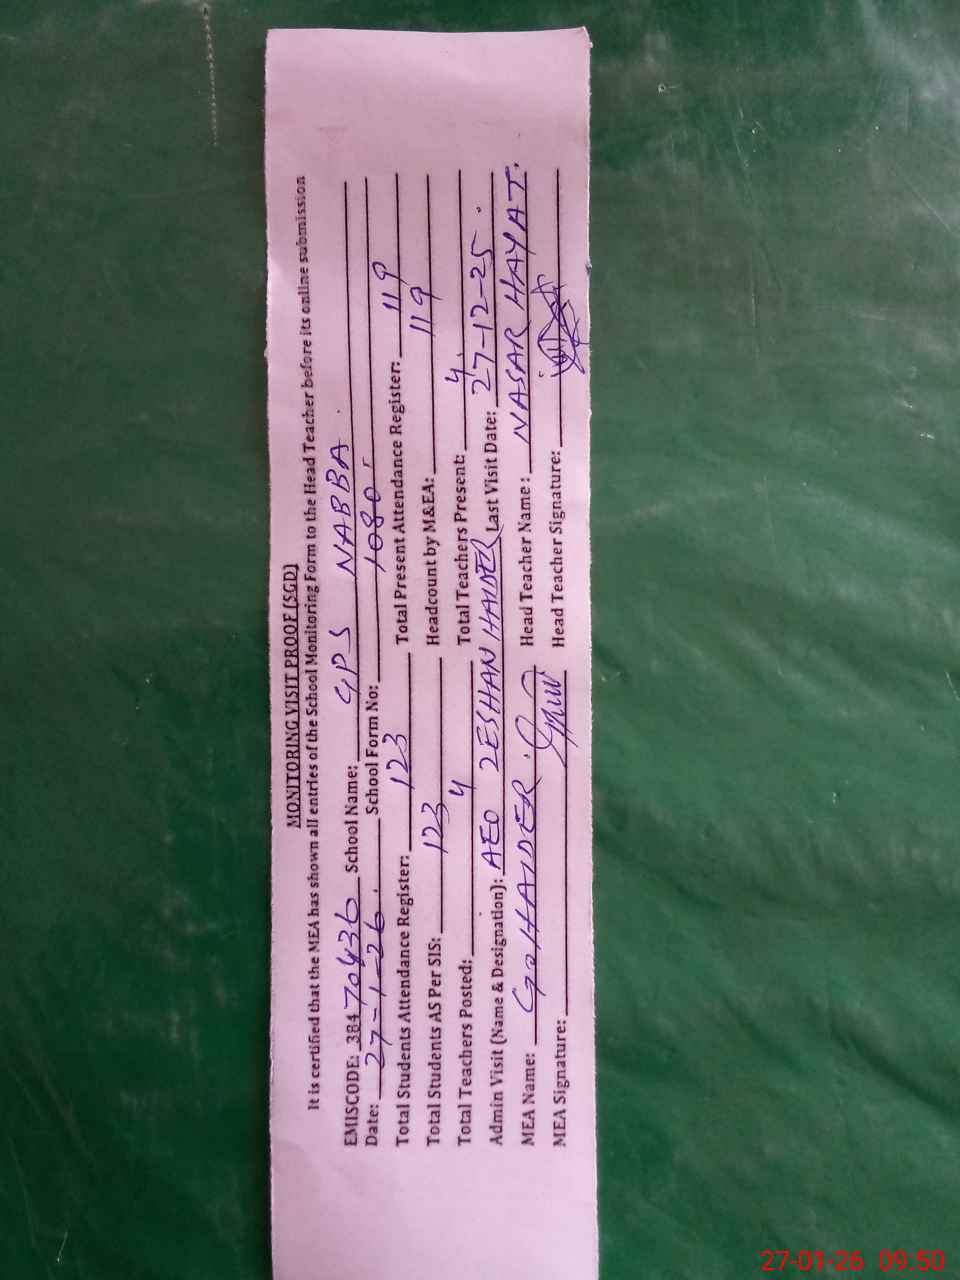 MONITORING VISIT PROOF (SGD)
It is certified that the MEA has shown all entries of the School Monitoring Form to the Head Teacher before its online submission
EMISCODE: 38470436 School Name: GPS NABBA
Date: 27-1-26. School Form No: 1080
Total Students Attendance Register: 123 Total Present Attendance Register: 119
Total Students AS Per SIS: 123 Headcount by M&EA: 119
Total Teachers Posted: 4 Total Teachers Present: 4
Admin Visit (Name & Designation): AEO ZESHAN HAIDER Last Visit Date: 27-12-25.
MEA Name: HAIDER. Head Teacher Name: NASAR HAYAT.
MEA Signature: Head Teacher Signature:
27-01-26 09:50